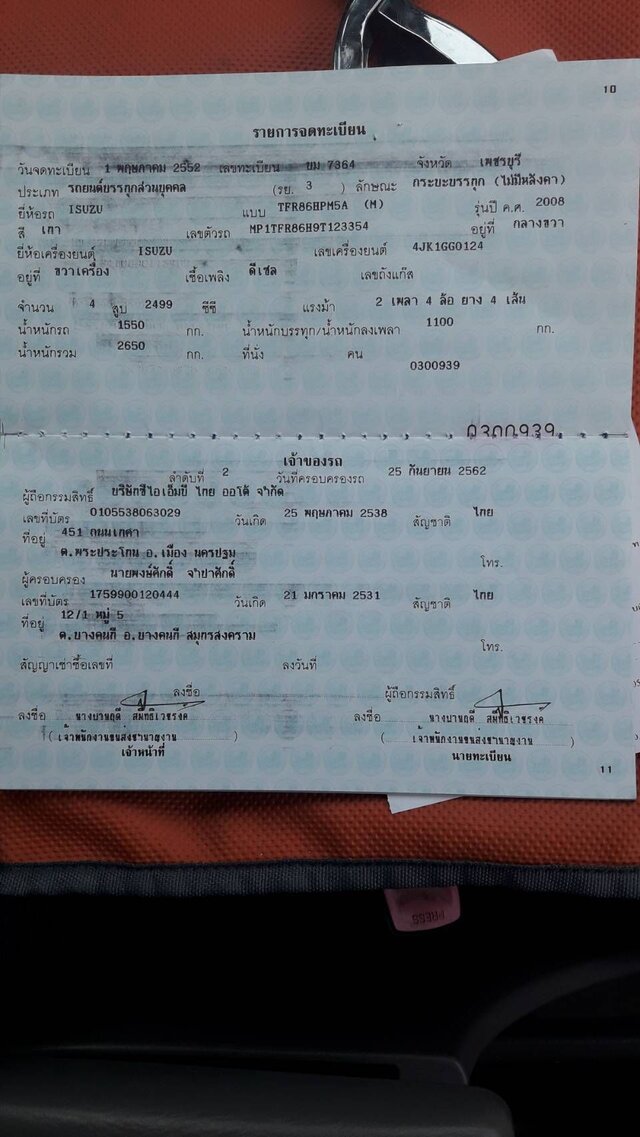 10
รายการจดทะเบียน
วันจดทะเบียน 1 พฤษภาคม 2552 เลขทะเบียน ยม 7364 จังหวัด เพชรบุรี
ประเภท รถยนต์บรรทุกส่วนบุคคล (รย. 3 ) ลักษณะ กระบะบรรทุก (ไม่มีหลังคา)
ยี่ห้อรถ ISUZU แบบ TFR86HPM5A (M) รุ่นปี ค.ศ. 2008
สี เทา เลขตัวรถ MP1TFR86H9T123354 อยู่ที่ กลางขวา
ยี่ห้อเครื่องยนต์ ISUZU เลขเครื่องยนต์ 4JK1GG0124
อยู่ที่ ขวาเครื่อง เชื้อเพลิง ดีเซล เลขถังแก๊ส
จำนวน 4 สูบ 2499 ซีซี แรงม้า 2 เพลา 4 ล้อ ยาง 4 เส้น
น้ำหนักรถ 1550 กก. น้ำหนักบรรทุก/น้ำหนักลงเพลา 1100 กก.
น้ำหนักรวม 2650 กก. ที่นั่ง คน
0300939
0300939
เจ้าของรถ
ลำดับที่ 2 วันที่ครอบครองรถ 25 กันยายน 2562
ผู้ถือกรรมสิทธิ์ บริษัทซีไอเอ็มบี ไทย ออโต้ จำกัด
เลขที่บัตร 0105538063029 วันเกิด 25 พฤษภาคม 2538 สัญชาติ ไทย
ที่อยู่ 451 ถนนเทศา
ต.พระประโทน อ.เมือง นครปฐม
โทร.
ผู้ครอบครอง นายพงษ์ศักดิ์ จำปาศักดิ์
เลขที่บัตร 1759900120444 วันเกิด 21 มกราคม 2531 สัญชาติ ไทย
ที่อยู่ 12/1 หมู่ 5
ต.บางคนที อ.บางคนที สมุทรสงคราม
โทร.
สัญญาเช่าซื้อเลขที่ ลงวันที่
ลงชื่อ ผู้ถือกรรมสิทธิ์
ลงชื่อ ลงชื่อ
(เจ้าพนักงานขนส่งชำนาญงาน) (เจ้าพนักงานขนส่งชำนาญงาน)
เจ้าหน้าที่ นายทะเบียน
11
PRESS